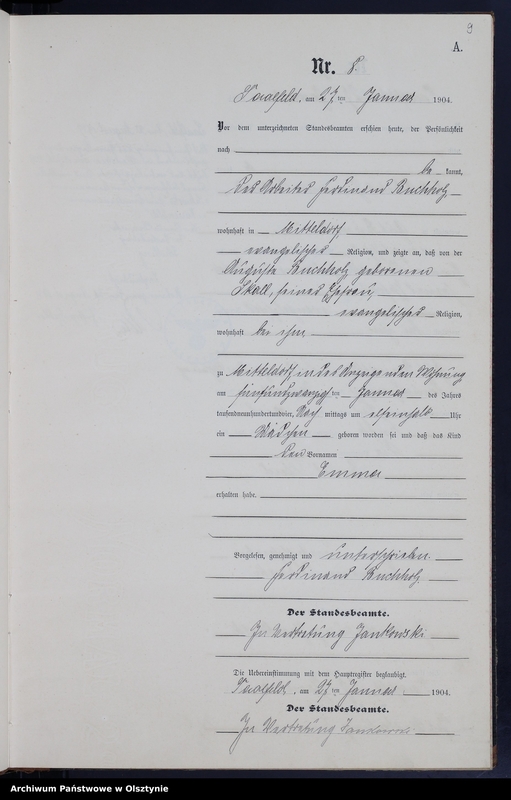 9
A.
Nr. 8.
Saalfeld, am 27ten Januar 1904.
Vor dem unterzeichneten Standesbeamten erschien heute, der Persönlichkeit
nach
be kannt,
der Arbeiter Ferdinand Buchholz
wohnhaft in Mitteldorf
evangelischer Religion, und zeigte an, daß von der
Auguste Buchholz geborenen
Skall, seiner Ehefrau,
evangelischer Religion,
wohnhaft bei ihm
zu Mitteldorf, in des Anzeigenden Wohnung
am fünfundzwanzigsten Januar des Jahres
tausendneunhundertundvier, Nach mittags um elfeinhalb Uhr
ein Mädchen geboren worden sei und daß das Kind
den Vornamen
Emma
erhalten habe.
Vorgelesen, genehmigt und unterschrieben
Ferdinand Buchholz
Der Standesbeamte.
In Vertretung Jankowski
Die Uebereinstimmung mit dem Hauptregister beglaubigt.
Saalfeld, am 27ten Januar 1904.
Der Standesbeamte.
In Vertretung Jankowski
Archiwum Państwowe w Olsztynie